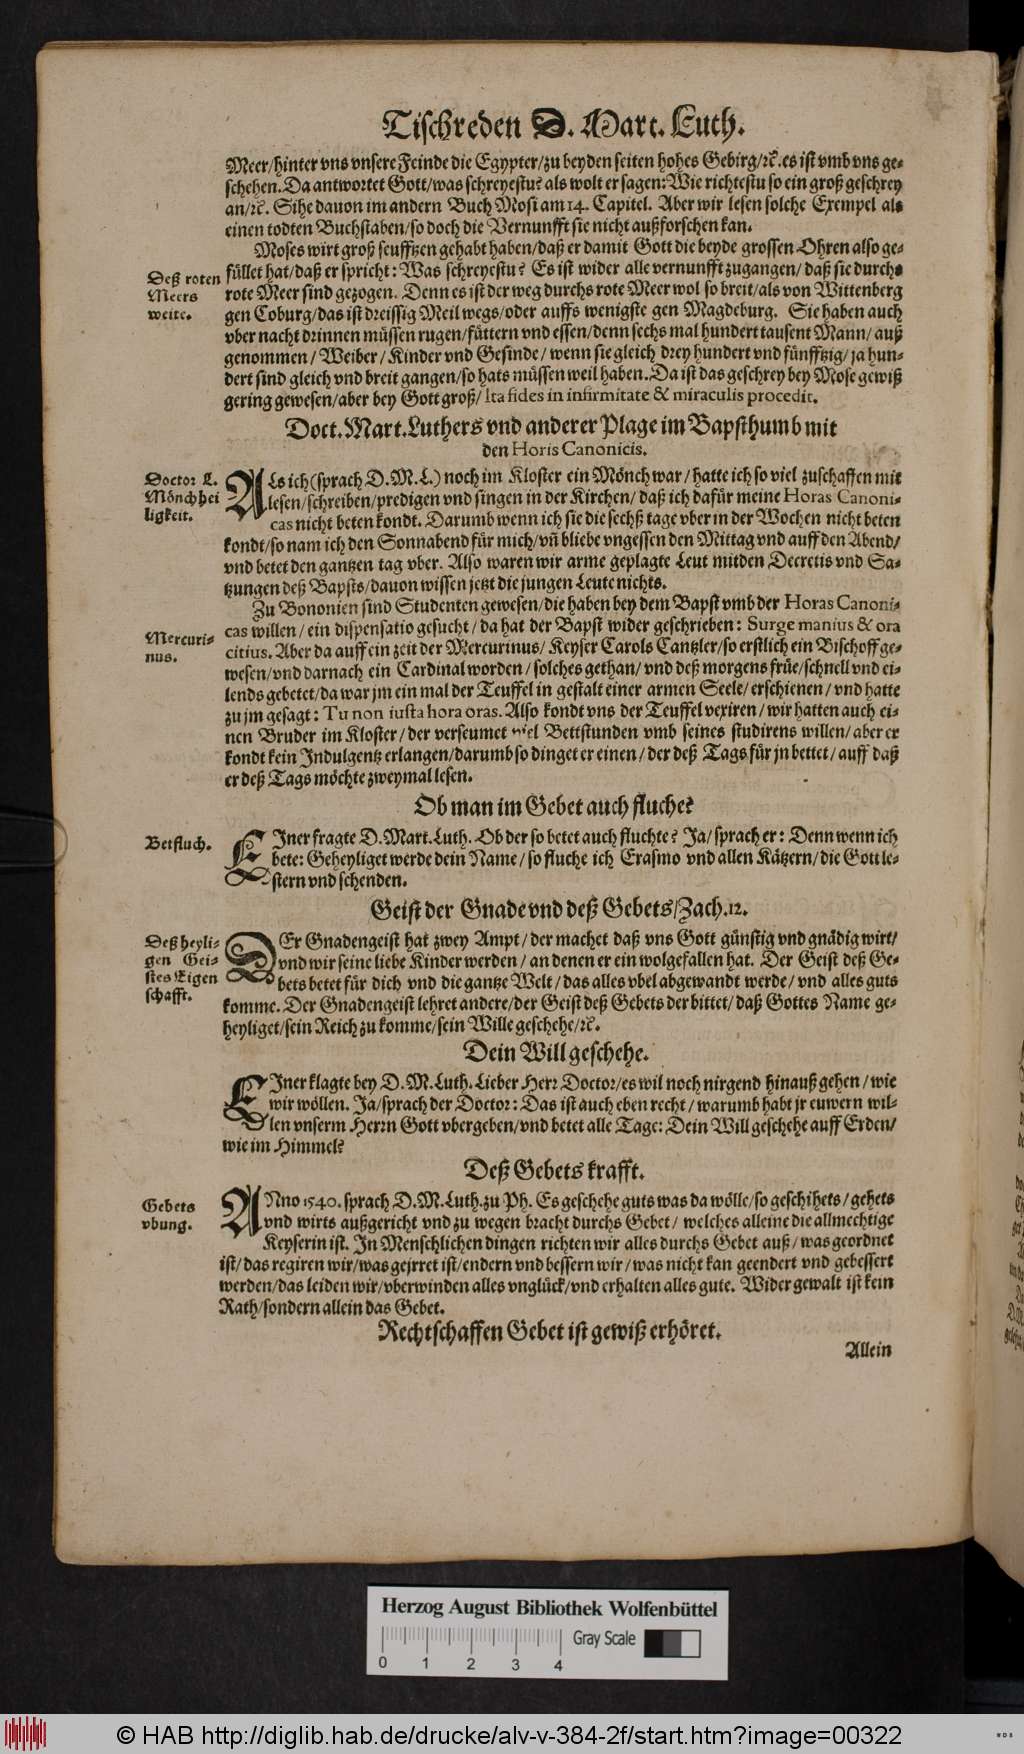 Tischreden D. Mart. Luth.
Meer/hinter vns vnsere Feinde die Egypter/zu beyden seiten hohes Gebirg/ꝛc̃.es ist vmb vns ge-
schehen.Da antwortet Gott/was schreyestu? als wolt er sagen: Wie richtestu so ein groß geschrey
an/ꝛc̃. Sihe dauon im andern Buch Mosi am 14. Capitel. Aber wir lesen solche Exempel als
einen todten Buchstaben/so doch die Vernunfft sie nicht außforschen kan.
Moses wirt groß seufftzen gehabt haben/daß er damit Gott die beyde grossen Ohren also ge-
Deß roten
Meers
weite.
füllet hat/daß er spricht: Was schreyestu? Es ist wider alle vernunfft zugangen/ daß sie durchs
rote Meer sind gezogen. Denn es ist der weg durchs rote Meer wol so breit/als von Wittenberg
gen Coburg/das ist dreissig Meil wegs/oder auffs wenigste gen Magdeburg. Sie haben auch
vber nacht drinnen müssen rugen/füttern vnd essen/denn sechs mal hundert tausent Mann/ auß
genommen/ Weiber/ Kinder vnd Gesinde/ wenn sie gleich drey hundert vnd fünfftzig/ ja hun-
dert sind gleich vnd breit gangen/so hats müssen weil haben. Da ist das geschrey bey Mose gewiß
gering gewesen/aber bey Gott groß/ Ita fides in infirmitate & miraculis procedit.
Doct.Mart.Luthers vnd anderer Plage im Bapsthumb mit
den Horis Canonicis.
Doctor L.
Mönch hei
ligkeit.
ALs ich (sprach D.M.L.) noch im Kloster ein Mönch war/ hatte ich so viel zuschaffen mit
lesen/schreiben/predigen vnd singen in der Kirchen/ daß ich dafür meine Horas Canoni-
cas nicht beten kondt. Darumb wenn ich sie die sechß tage vber in der Wochen nicht beten
kondt/so nam ich den Sonnabend für mich/vñ bliebe vngessen den Mittag vnd auff den Abend/
vnd betet den gantzen tag vber. Also waren wir arme geplagte Leut mit den Decretis vnd Sa-
tzungen deß Bapsts/dauon wissen jetzt die jungen Leute nichts.
Zu Bononien sind Studenten gewesen/die haben bey dem Bapst vmb der Horas Canoni-
Mercuri-
nus.
cas willen/ ein dispensatio gesucht/ da hat der Bapst wider geschrieben: Surge manius & ora
citius. Aber da auff ein zeit der Mercurinus/ Keyser Carols Cantzler/so erstlich ein Bischoff ge-
wesen/vnd darnach ein Cardinal worden/ solches gethan/ vnd deß morgens früe/schnell vnd ei-
lends gebetet/da war jm ein mal der Teuffel in gestalt einer armen Seele/ erschienen/ vnd hatte
zu jm gesagt: Tu non iusta hora oras. Also kondt vns der Teuffel vexiren/ wir hatten auch ei-
nen Bruder im Kloster/ der verseumet viel Bettstunden vmb seines studirens willen/ aber er
kondt kein Indulgentz erlangen/darumb so dinget er einen/ der deß Tags für jn bettet/ auff daß
er deß Tags möchte zweymal lesen.
Ob man im Gebet auch fluche?
Betfluch.
EIner fragte D.Mart.Luth. Ob der so betet auch fluchte? Ja/ sprach er: Denn wenn ich
bete: Geheyliget werde dein Name/ so fluche ich Erasmo vnd allen Kätzern/die Gott le-
stern vnd schenden.
Geist der Gnade vnd deß Gebets/Zach.12.
Deß heyli-
gen Gei-
stes Eigen
schafft.
DEr Gnadengeist hat zwey Ampt/ der machet daß vns Gott günstig vnd gnädig wirt/
vnd wir seine liebe Kinder werden/ an denen er ein wolgefallen hat. Der Geist deß Ge-
bets betet für dich vnd die gantze Welt/ das alles vbel abgewandt werde/ vnd alles guts
komme. Der Gnadengeist lehret andere/der Geist deß Gebets der bittet/ daß Gottes Name ge-
heyliget/sein Reich zu komme/sein Wille geschehe/ꝛc̃.
Dein Will geschehe.
EIner klagte bey D.M.Luth. Lieber Herr Doctor/es wil noch nirgend hinauß gehen/ wie
wir wöllen. Ja/sprach der Doctor: Das ist auch eben recht/ warumb habt jr euwern wil-
len vnserm Herrn Gott vbergeben/vnd betet alle Tage: Dein Will geschehe auff Erden/
wie im Himmel?
Deß Gebets krafft.
Gebets
vbung.
ANno 1540. sprach D.M.Luth.zu Ph. Es geschehe guts was da wölle/so geschihets/ gehets
vnd wirts außgericht vnd zu wegen bracht durchs Gebet/ welches alleine die allmechtige
Keyserin ist. In Menschlichen dingen richten wir alles durchs Gebet auß/ was geordnet
ist/das regiren wir/was gejrret ist/endern vnd bessern wir/ was nicht kan geendert vnd gebessert
werden/das leiden wir/vberwinden alles vnglück/vnd erhalten alles gute. Wider gewalt ist kein
Rath/sondern allein das Gebet.
Rechtschaffen Gebet ist gewiß erhöret.
Allein
Herzog August Bibliothek Wolfenbüttel
Gray Scale
0 1 2 3 4
© HAB http://diglib.hab.de/drucke/alv-v-384-2f/start.htm?image=00322